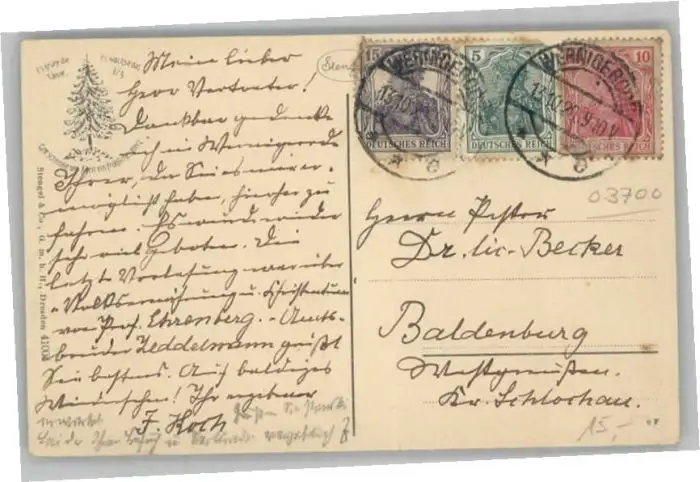 Meine lieber
Herr Vertreter!
Dankbar gedenke
ich in Wernigerode
Ihrer, der Sie es mir er-
möglicht haben, hierher zu
fahren. Es wird wieder
sehr viel geboten. Die
letzte Vorlesung war über
"Volksernährung u. Christentum"
von Prof. Ehrenberg. - Amts-
bruder Zeddelmann grüßt
Sie bestens. Auf baldiges
Wiedersehen! Ihr ergebener
F. Koch
Stengel & Co., G. m. b. H., Dresden
15
5
10
DEUTSCHES REICH
DEUTSCHES REICH
DEUTSCHES REICH
WERNIGERODE
WERNIGERODE
03700
Herrn Pastor
Dr. lic. Becker
Baldenburg
Westpreußen.
Kr. Schlochau.
15,-